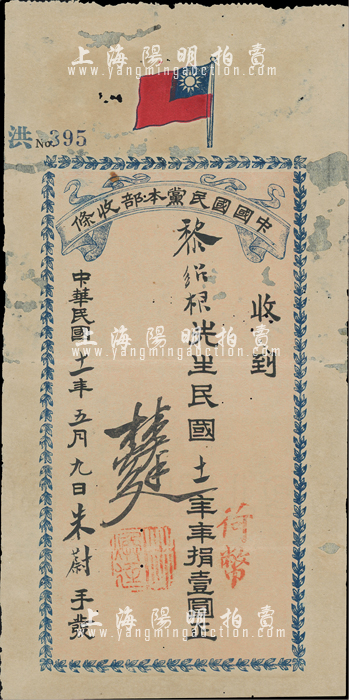 上海陽明拍賣
www.yangmingauction.com
洪 No. 395
中國國民黨本部收條
收到
黎紹根先生民國十一年年捐壹圓正
荷幣
中華民國十一年五月九日朱蔚手發
上海陽明拍賣
www.yangmingauction.com
上海陽明拍賣
www.yangmingauction.com